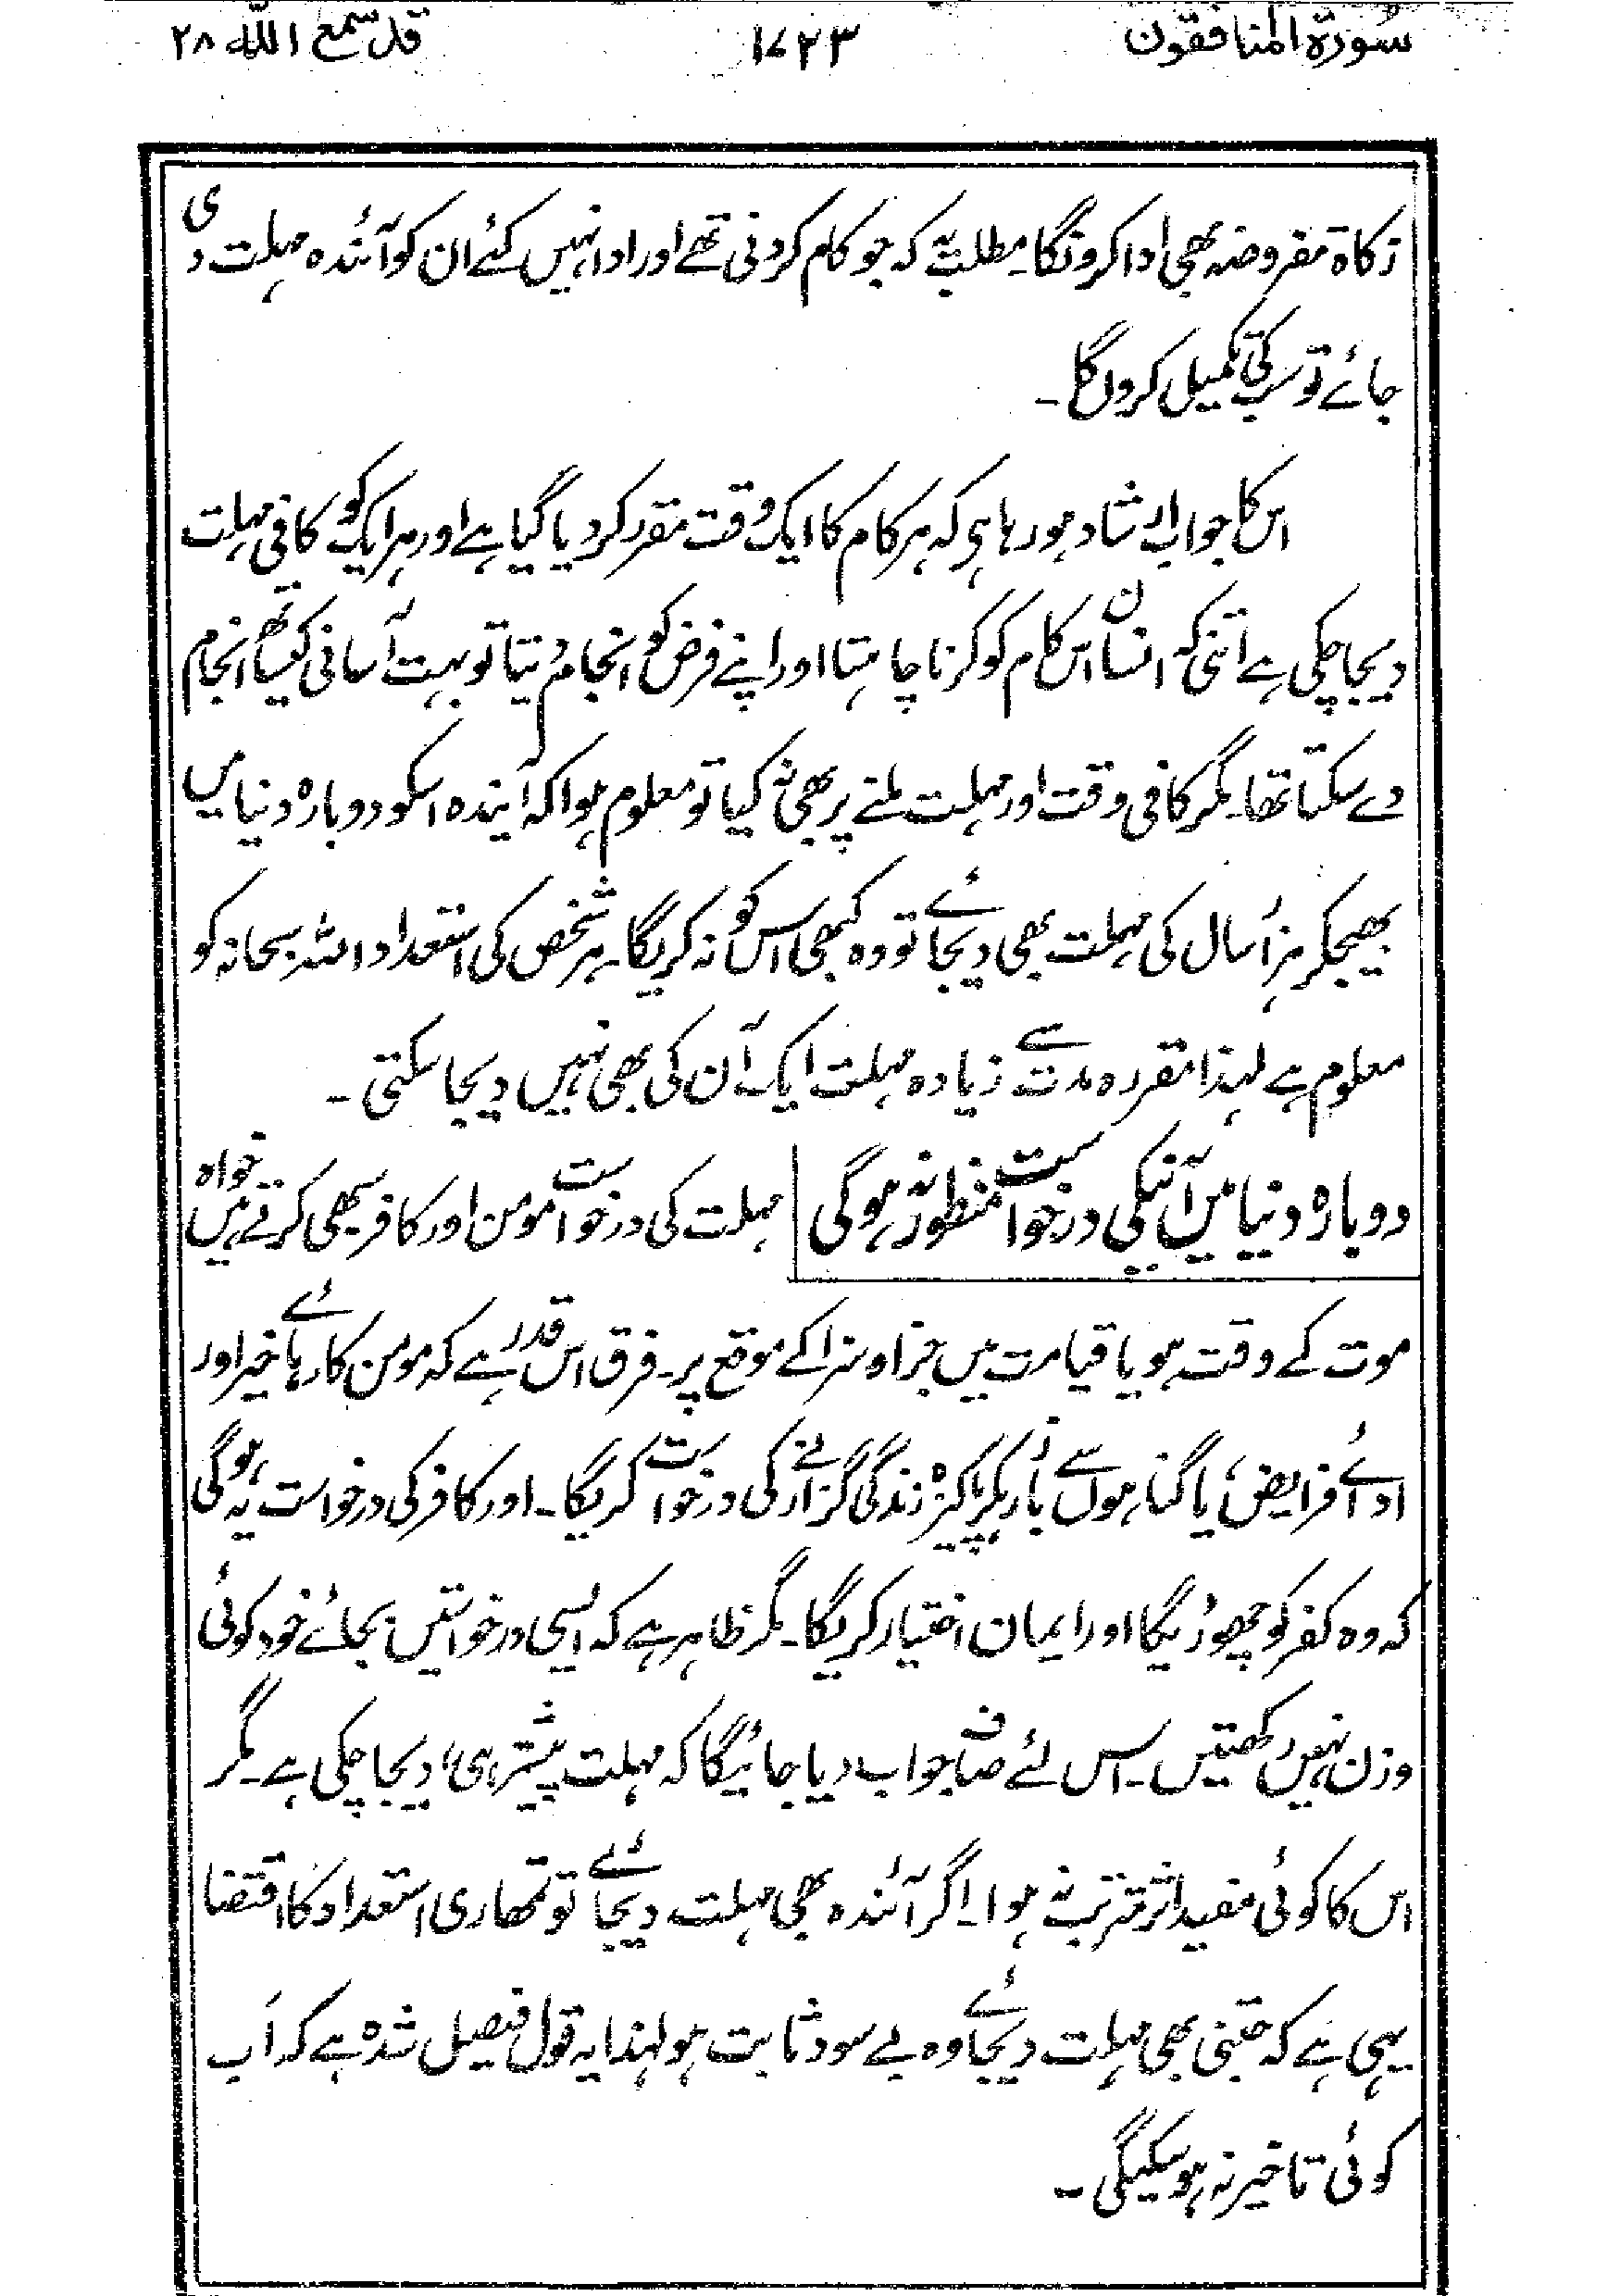 سُورۃ المنافقون ۱۷۲۳ قد سمع اللّٰہ ۲۸
زکاۃ مفروضہ بھی ادا کرونگا۔ مطلب یہ کہ جو کام کردنی تھے اور ادا نہیں کئے ان کو آئندہ مہلت دی
جائے تو سب کی تکمیل کروں گا۔
اس کا جواب ارشاد ہو رہا ہی کہ ہر کام کا ایک وقت مقرر کر دیا گیا ہے اور ہر ایک کو کافی مہلت
دیجا چکی ہے اتنی کہ انسان اس کام کو کرنا چاہتا اور اپنے فرض کو انجام دیتا تو بہت آسانی کیساتھ انجام
دے سکتا تھا۔ مگر کافی وقت اور مہلت ملنے پر بھی نہ کیا تو معلوم ہوا کہ آیندہ اسکو دوبارہ دنیا میں
بھیجکر ہزار سال کی مہلت بھی دیجائے تو وہ کبھی اس کو نہ کریگا۔ ہر شخص کی استعداد اللہ سبحانہ کو
معلوم ہے لہٰذا مقررہ مدت سے زیادہ مہلت ایک آن کی بھی نہیں دیجا سکتی۔
دوبارہ دنیا میں آنیکی درخواست منظور نہ ہوگی مہلت کی درخواست مومن اور کافر سبھی کرتے ہیں خواہ
موت کے وقت ہو یا قیامت میں جزا و سزا کے موقع پر۔ فرق اس قدر ہے کہ مومن کارہائے خیر اور
ادائے فرایض، یا گناہوں سے باز رہکر پاکیزہ زندگی گزارنے کی درخواست کریگا۔ اور کافر کی درخواست یہ ہوگی
کہ وہ کفر کو چھوڑیگا اور ایمان اختیار کریگا۔ مگر ظاہر ہے کہ ایسی درخواستیں بجائے خود کوئی
وزن نہیں رکھتیں۔ اس لئے صاف جواب دیا جائیگا کہ مہلت پیشتر ہی دیجا چکی ہے۔ مگر
اس کا کوئی مفید اثر مترتب نہ ہوا۔ اگر آئندہ بھی مہلت دیجائے تو تمھاری استعداد کا اقتضا
یہی ہے کہ جتنی بھی مہلت دیجائے وہ بے سود ثابت ہو لہٰذا یہ قول فیصل شدہ ہے کہ اَب
کوئی تاخیر نہ ہو سکیگی۔